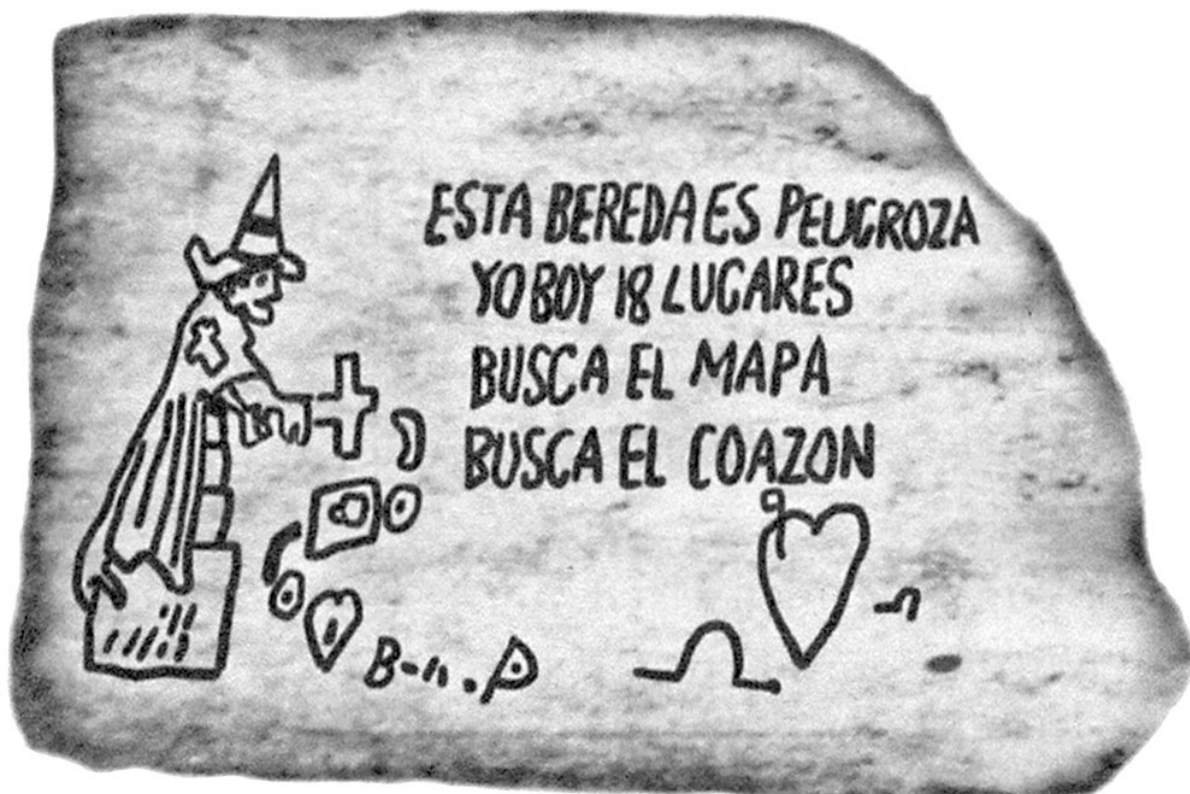 ESTA BEREDA ES PELIGROZA
YO BOY 18 LUGARES
BUSCA EL MAPA
BUSCA EL COAZON
B-11.P